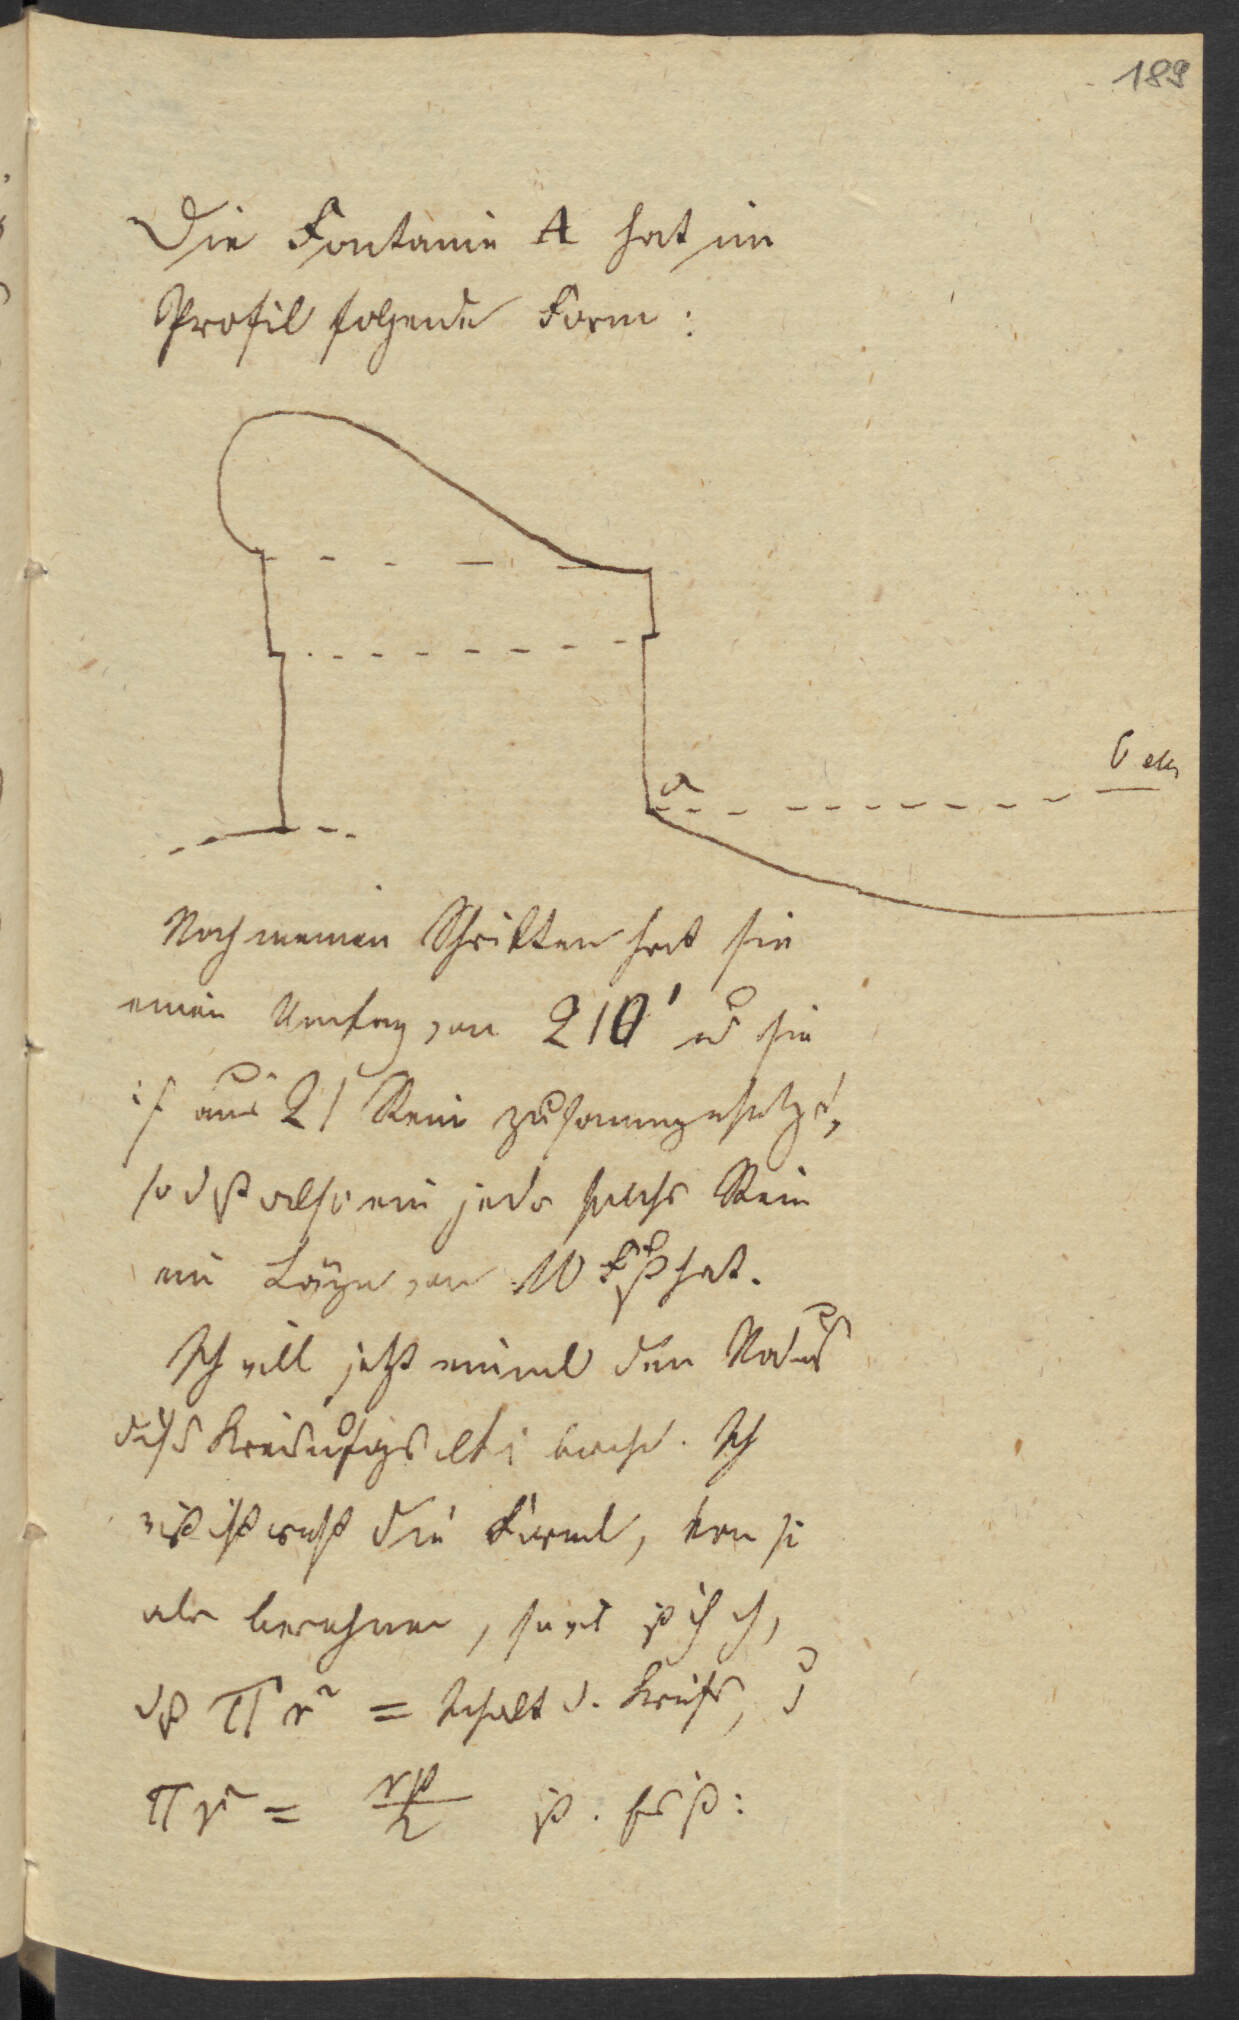 189
Die Fontaine A hat im
Profil folgende Form:
a
Nach meinen Schritten hat sie
einen Umfang von 210' und sie
ist aus 21 Stein zusammengesetzt,
so daß also ein jeder solcher Stein
ein Länge von 10 Fuß hat.
Ich will jetzt einmal den Radius
dieses Kreis Ich
die Formel, sie
aber berechnen, ich,
dß πr² = Inhalt d. Kreises, u
πr² = rp/2 ist. Es ist: